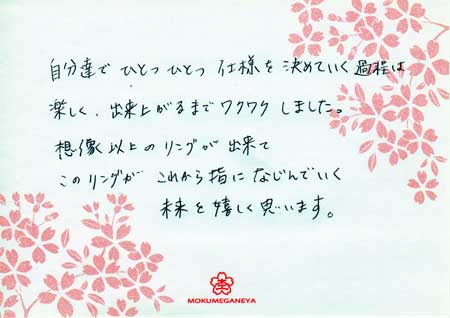 自分達で ひとつひとつ 仕様を 決めていく 過程は
楽しく、出来上がるまで ワクワク しました。
想像以上の リングが 出来て
このリングが これから 指に なじんでいく
未来を 嬉しく 思います。
MOKUMEGANEYA